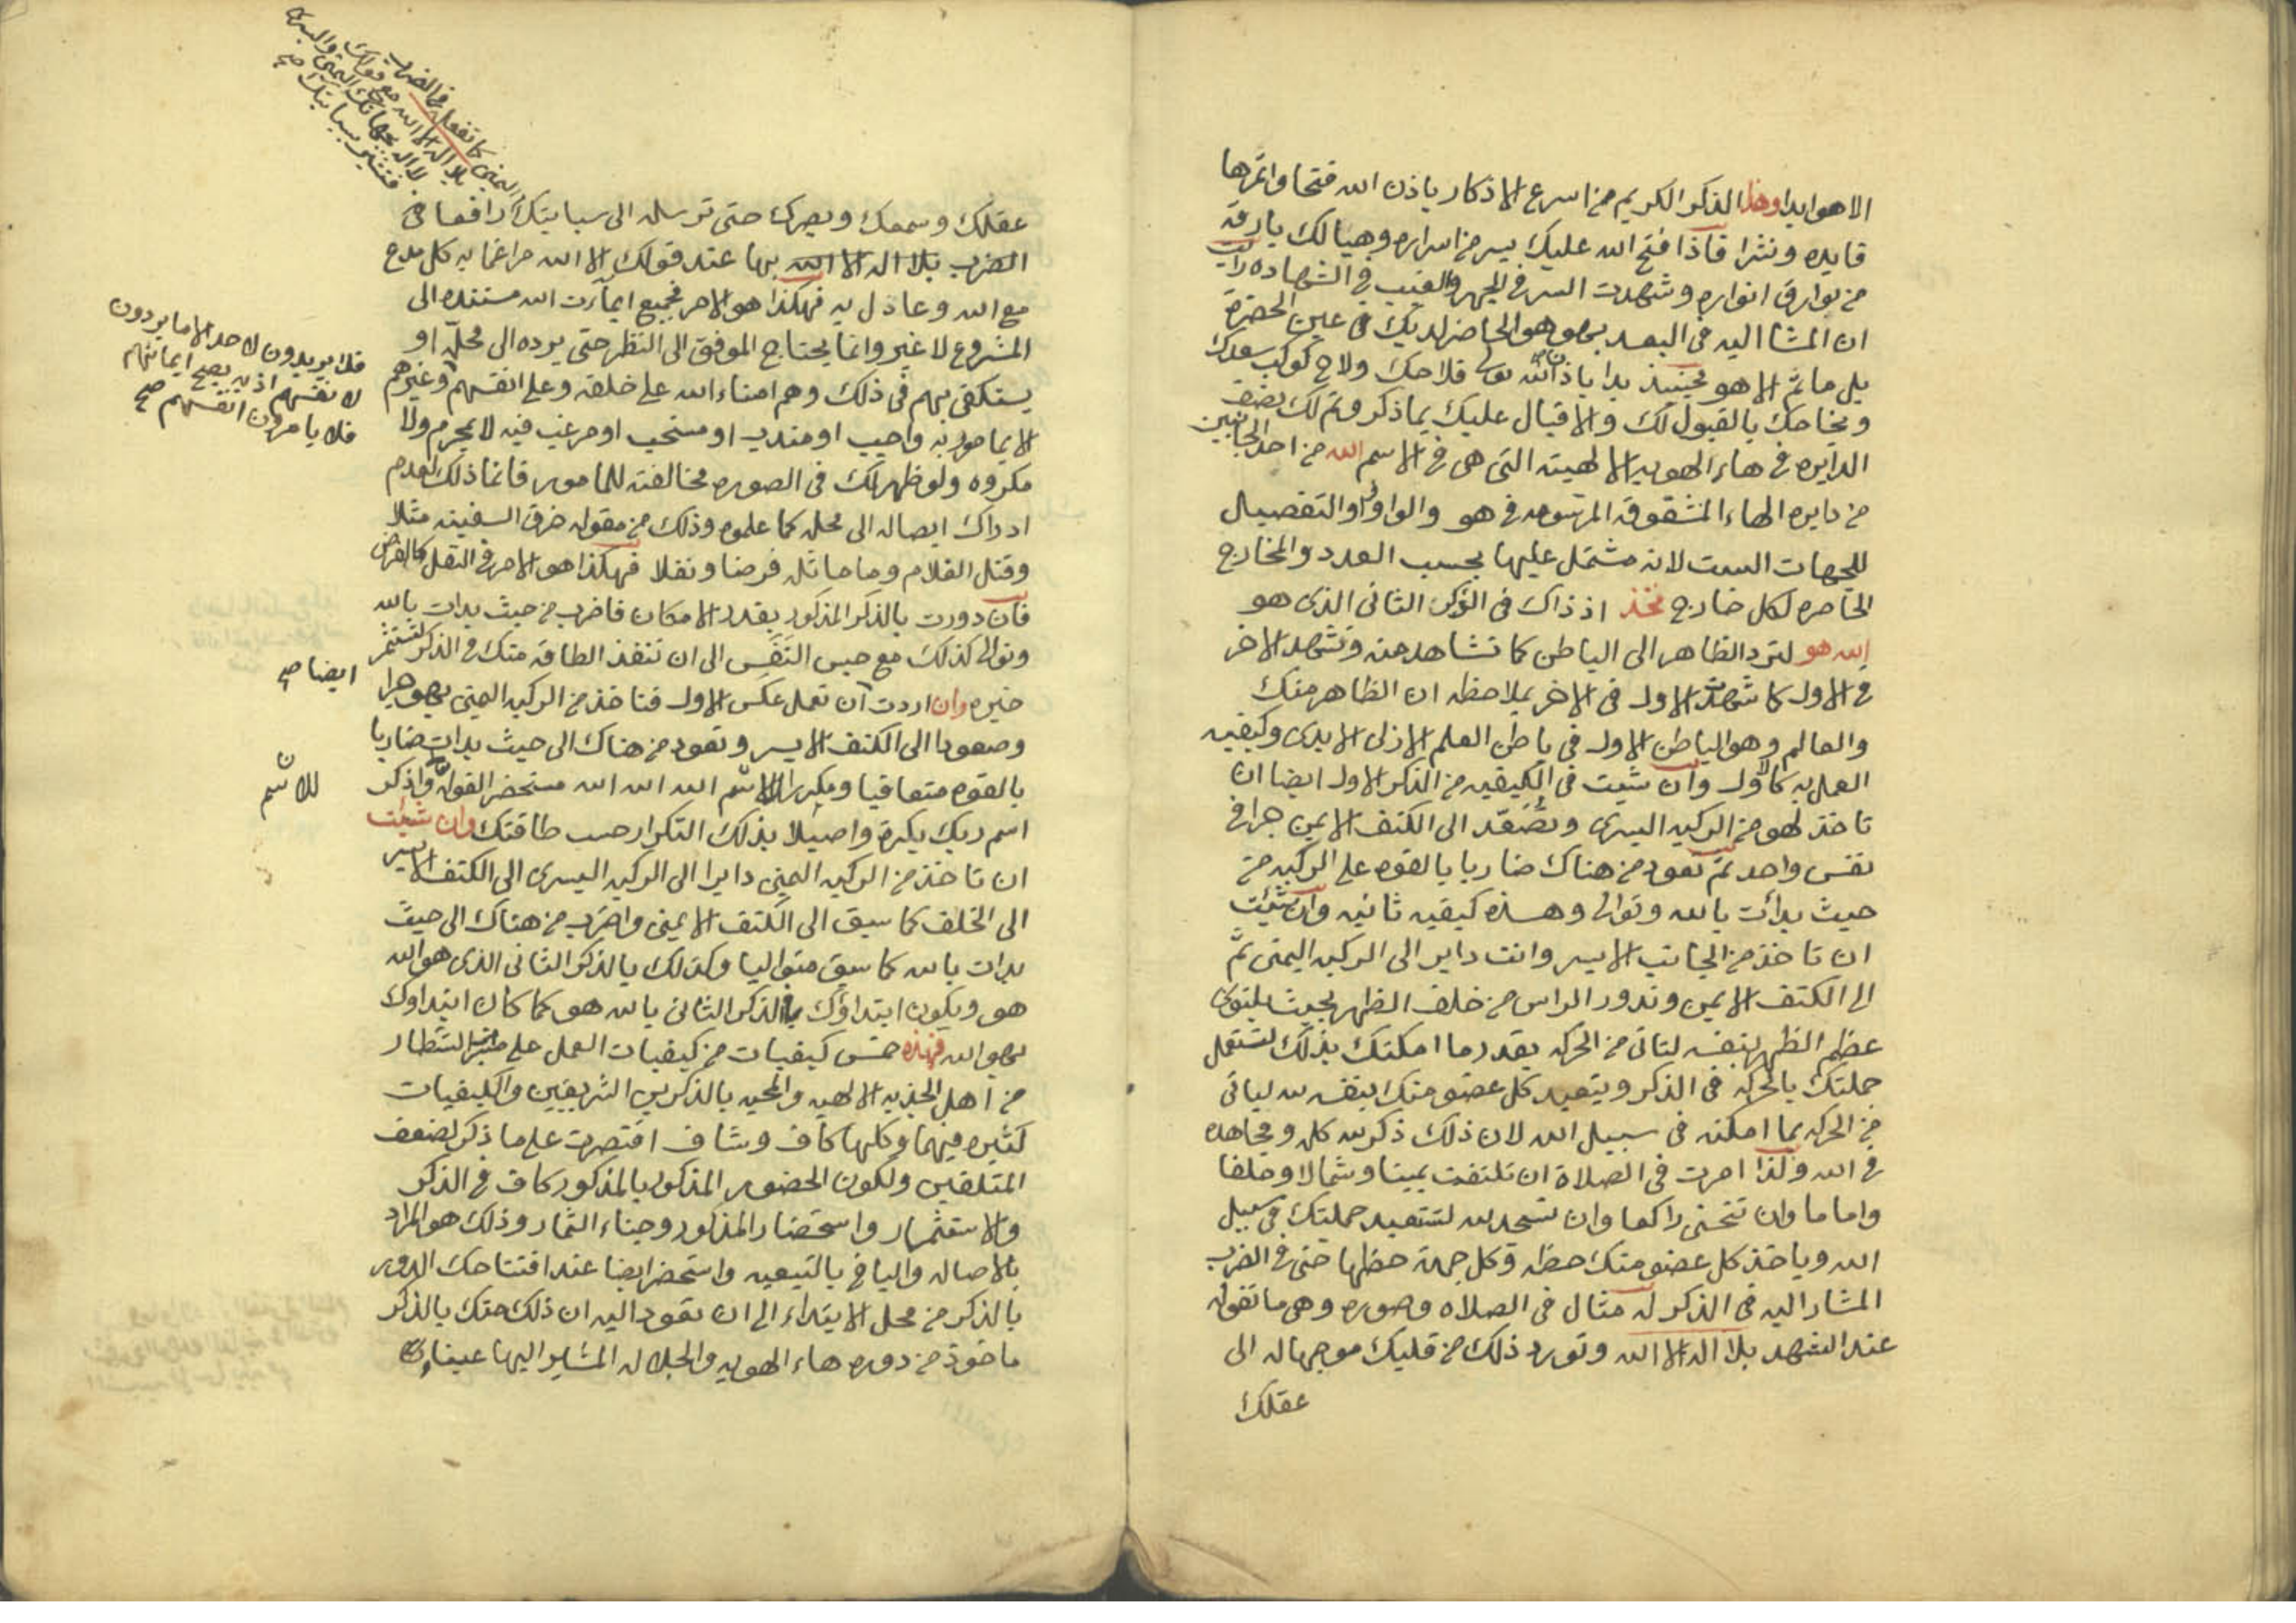 الا هو ابدا وهذا الذكر الكريم من اسرع الاذكار باذن الله فتحا واغزرها
فايده ونشرا فاذا فتح الله عليك بسر من اسراره وهيالك بارقة
من بوارق انواره وشهدت السر في الجهر والغيب في الشهاده رايت
ان المشا اليه في البعد بهو هو الحاضر لديك في عين الحضرة
بل ما ثم الا هو فحينيذ بدا باذن الله تعالى فلاحك ولاح كوكب سعدك
ونجاحك بالقبول لك والاقبال عليك بما ذكر وتم لك نصف
الدايره في هاء الهويه الالهية التي هي في الاسم الله من احد الجانبين
من دايره الهاء المشقوقة المرتومه في هو والواو والتفصيل
للجهات الست لانه مشتمل عليها بحسب العدد والمخارج
الحاصره لكل خارج فخذ اذ ذاك في الذكر الثاني الذي هو
الله هو لترد الظاهر الى الباطن كما تشاهد منه وتشهد الاخر
في الاول كما شهدت الاول في الاخر بملاحظه ان الظاهر منك
والعالم وهو الباطن الاول في باطن العلم الازلي الابدي وكيفيه
العمل به كالاول وان شيت في الكيفيه من الذكر الاول ايضا ان
تاخذ لهو من الركبه اليسرى وتصعد الى الكتف الايمن جرا في
نفس واحد ثم تعود من هناك ضاربا بالقوه على الركبه من
حيث بدأت بالله وتوالى وهذه كيفيه ثانيه وان شئت
ان تاخذ من الجانب الايسر وانت داير الى الركبه اليمنى ثم
الى الكتف الايمن وتدور الراس من خلف الظهر بحيث يلتوي
عظم الظهر بنفسه لياتى من الحركه بقدر ما امكنك بذلك لتستعمل
جملتك بالحركه في الذكر ويتعبد كل عضو منك بنفسه لله لياتى
من الحركه بما امكنه في سبيل الله لان ذلك ذكر لله كله ومجاهده
في الله ولذا امرت في الصلاة ان تلتفت يمينا وشمالا وخلفا
واماما وان تنحني راكعا وان تسجد لله لتتعبد جملتك في سبيل
الله وياخذ كل عضو منك حظه وكل جهة حظها حتى في الضرب
المشار اليه في الذكر له مثال في الصلاه وصوره وهي ما تقوله
عند التشهد بلا اله الا الله وتورد ذلك من قلبك موجها له الى
عقلك
اليمنى كما تفعل في الضرب
بلا اله الا الله مع قولك
لا اله بجهاتك اليمنى واليسرى
فتشير بسبابتك صح
عقلك وسمعك وبصرك حتى ترسله الى سبابتك رافعا في
الضرب بلا اله الا الله بها عند قولك الا الله مراغما به كل مدع
مع الله وعادل به فهكذا هو الامر فجميع ايماءت الله مستنده الى
المشروع لا غير وانما يحتاج الموفق الى النظر حتى يرده الى محله او
يستكفى بهم في ذلك وهم امناء الله على خلقه وعلى انفسهم وغيرهم
فلا يريدون لاحد الا ما يريدون
لا نفسهم اذ به يصح ايمانهم
فلا يامرون انفسهم صح
الا بما مور به واجب او مندب او مستحب او مرغب فيه لا بمحرم ولا
مكروه ولو ظهر لك في الصوره مخالفته للمامور فانما ذلك لعدم
ادراك ايصاله الى محله كما علموه وذلك من مقوله خرق السفينه مثلا
وقتل الغلام وما ماثله فرضا ونفلا فهكذا هو الامر في النفل كالفرض
فان دورت بالذكر المذكور بقدر الامكان فاضرب من حيث بدات بالله
وتوالى كذلك مع حبس النفس الى ان تنفد الطاقه منك في الذكر لتستثمر
خيره وان اردت ان تعمل عكس الاول فتاخذ من الركبه اليمنى بهو جرا
ايضا صح
وصعودا الى الكتف الايسر وتعود من هناك الى حيث بدات ضاربا
بالقوه متعاقبا ومكررا للاسم الله الله الله مستحضر القوله واذكر
للاسم
اسم ربك بكرة واصيلا بذلك التكرار حسب طاقتك وان شيت
ان تاخذ من الركبه اليمنى دايرا الى الركبه اليسرى الى الكتف الايسر
الى الخلف كما سبق الى الكتف الايمن واضرب من هناك الى حيث
بدات بالله كما سبق متواليا وكذلك بالذكر الثاني الذي هو الله
هو ويكون ابتداؤك بالذكر الثاني بالله هو كما كان ابتداوك
بهو الله فهذه خمس كيفيات من كيفيات العمل على الشطار
من اهل الجذبه الالهيه والمحبه بالذكرين الشريفين والكيفيات
كثيره فيهما وكلها كاف وشاف اقتصرت على ما ذكر لضعف
المتلقين ولكون الحضور المذكور بالمذكور كاف في الذكر
والاستثمار واستحضار المذكور وجناء الثمار وذلك هو المراد
بالاصاله والباقي بالتبعيه واستحضر ايضا عند افتتاحك الدور
بالذكر من محل الابتداء الى ان تعود اليه ان ذلك منك بالذكر
ماخوذ من دوره هاء الهويه والجلاله المشار اليها عينا